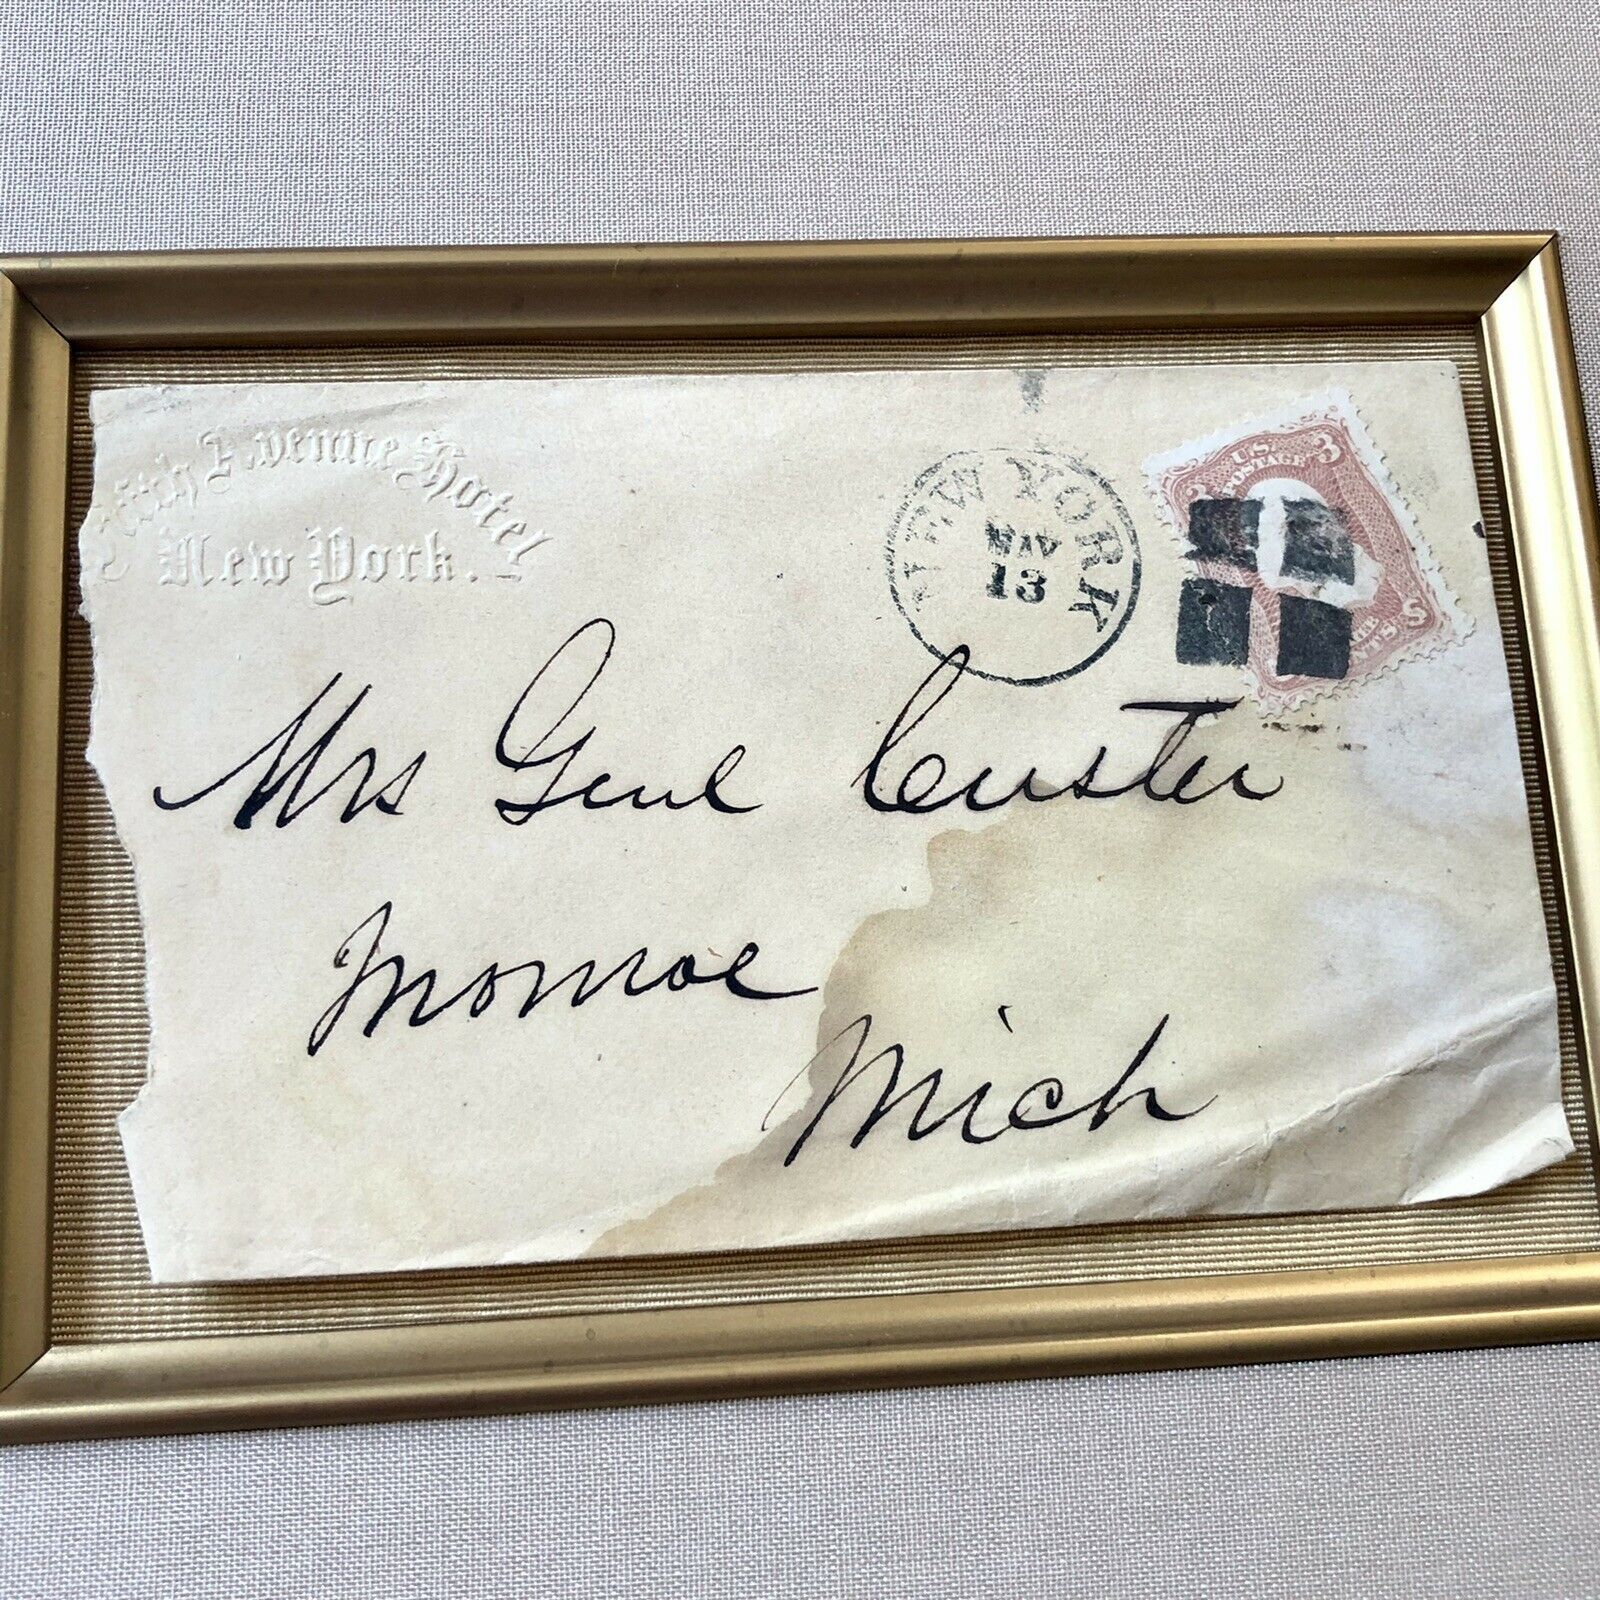 Fifth Avenue Hotel
New York.
NEW YORK
MAY
13
U.S.
POSTAGE
3
3
S
Mrs Genl Custer
Monroe
Mich